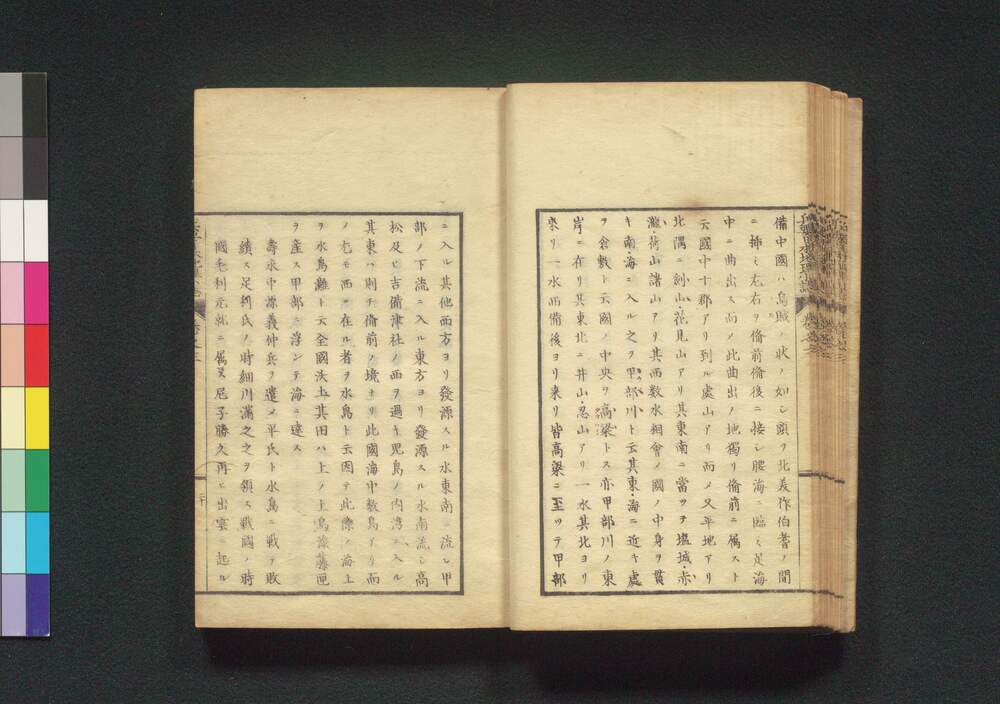 備中國ハ烏賊ノ状ノ如シ頭ヲ北美作伯耆ノ間
ニ挿ミ左右ヲ備前備後ニ接シ腰海ニ臨ミ足海
中ニ曲出ス而メ此曲出ノ地獨リ備前ニ属スト
云國中十郡アリ到ル處山アリ而メ又平地アリ
北隅ニ剣山花見山アリ其東南ニ當ツヲ塩城赤
瀧荷山諸山アリ其西数水相會メ國ノ中身ヲ貫
キ南海ニ入ル之ヲ甲部川ト云其東海ニ近キ處
ヲ倉敷ト云國ノ中央ヲ高梁トス亦甲部川ノ東
岸ニ在リ其東北ニ井山忍山アリ一水其北ヨリ
来リ一水西備後ヨリ来リ皆高梁ニ至ツテ甲部
ニ入ル其他西方ヨリ發源スル水東南ニ流シ甲
部ノ下流ニ入ル東方ヨリ發源スル水南流シ高
松及ヒ吉備津社ノ西ヲ過キ児島ノ内湾ニ入ル
其東ハ則チ備前ノ境ナリ此國海中数島アリ而
ノ尤モ西ニ在ル者ヲ水島ト云因テ此際ノ海上
ヲ水島難ト云全國沃土其田ハ上ノ上烏漆藤
ヲ産ス甲部ニ浮ンテ海ニ達ス
壽永中源義仲兵ヲ遣メ平氏ト水島ニ戦ヲ敗
績ス足利氏ノ時細川満之之ヲ領ス戦國ノ時
國毛利元就ニ属ス尼子勝久再ヒ出雲ニ起ル